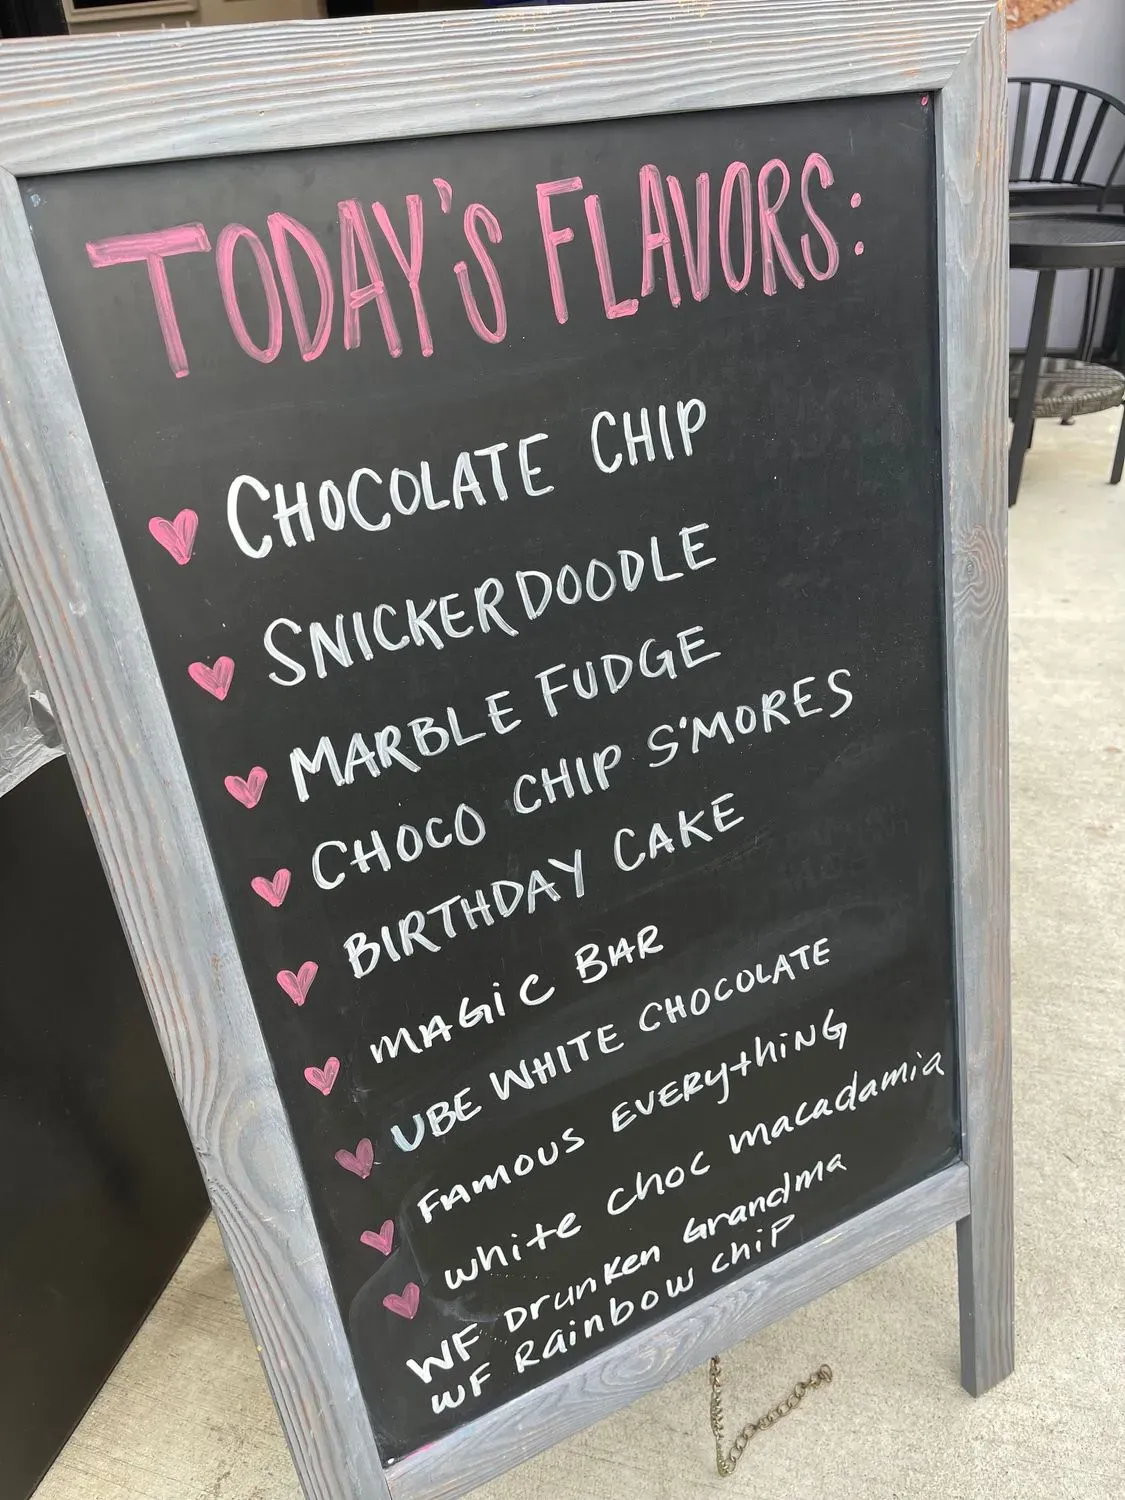 TODAY'S FLAVORS:
CHOCOLATE CHIP
SNICKERDOODLE
MARBLE FUDGE
CHOCO CHIP S'MORES
BIRTHDAY CAKE
MAGiC BAR
UBE WHITE CHOCOLATE
FAMOUS EVERythiNG
white choc macadamia
WF Drunken Grandma
WF Rainbow chiP